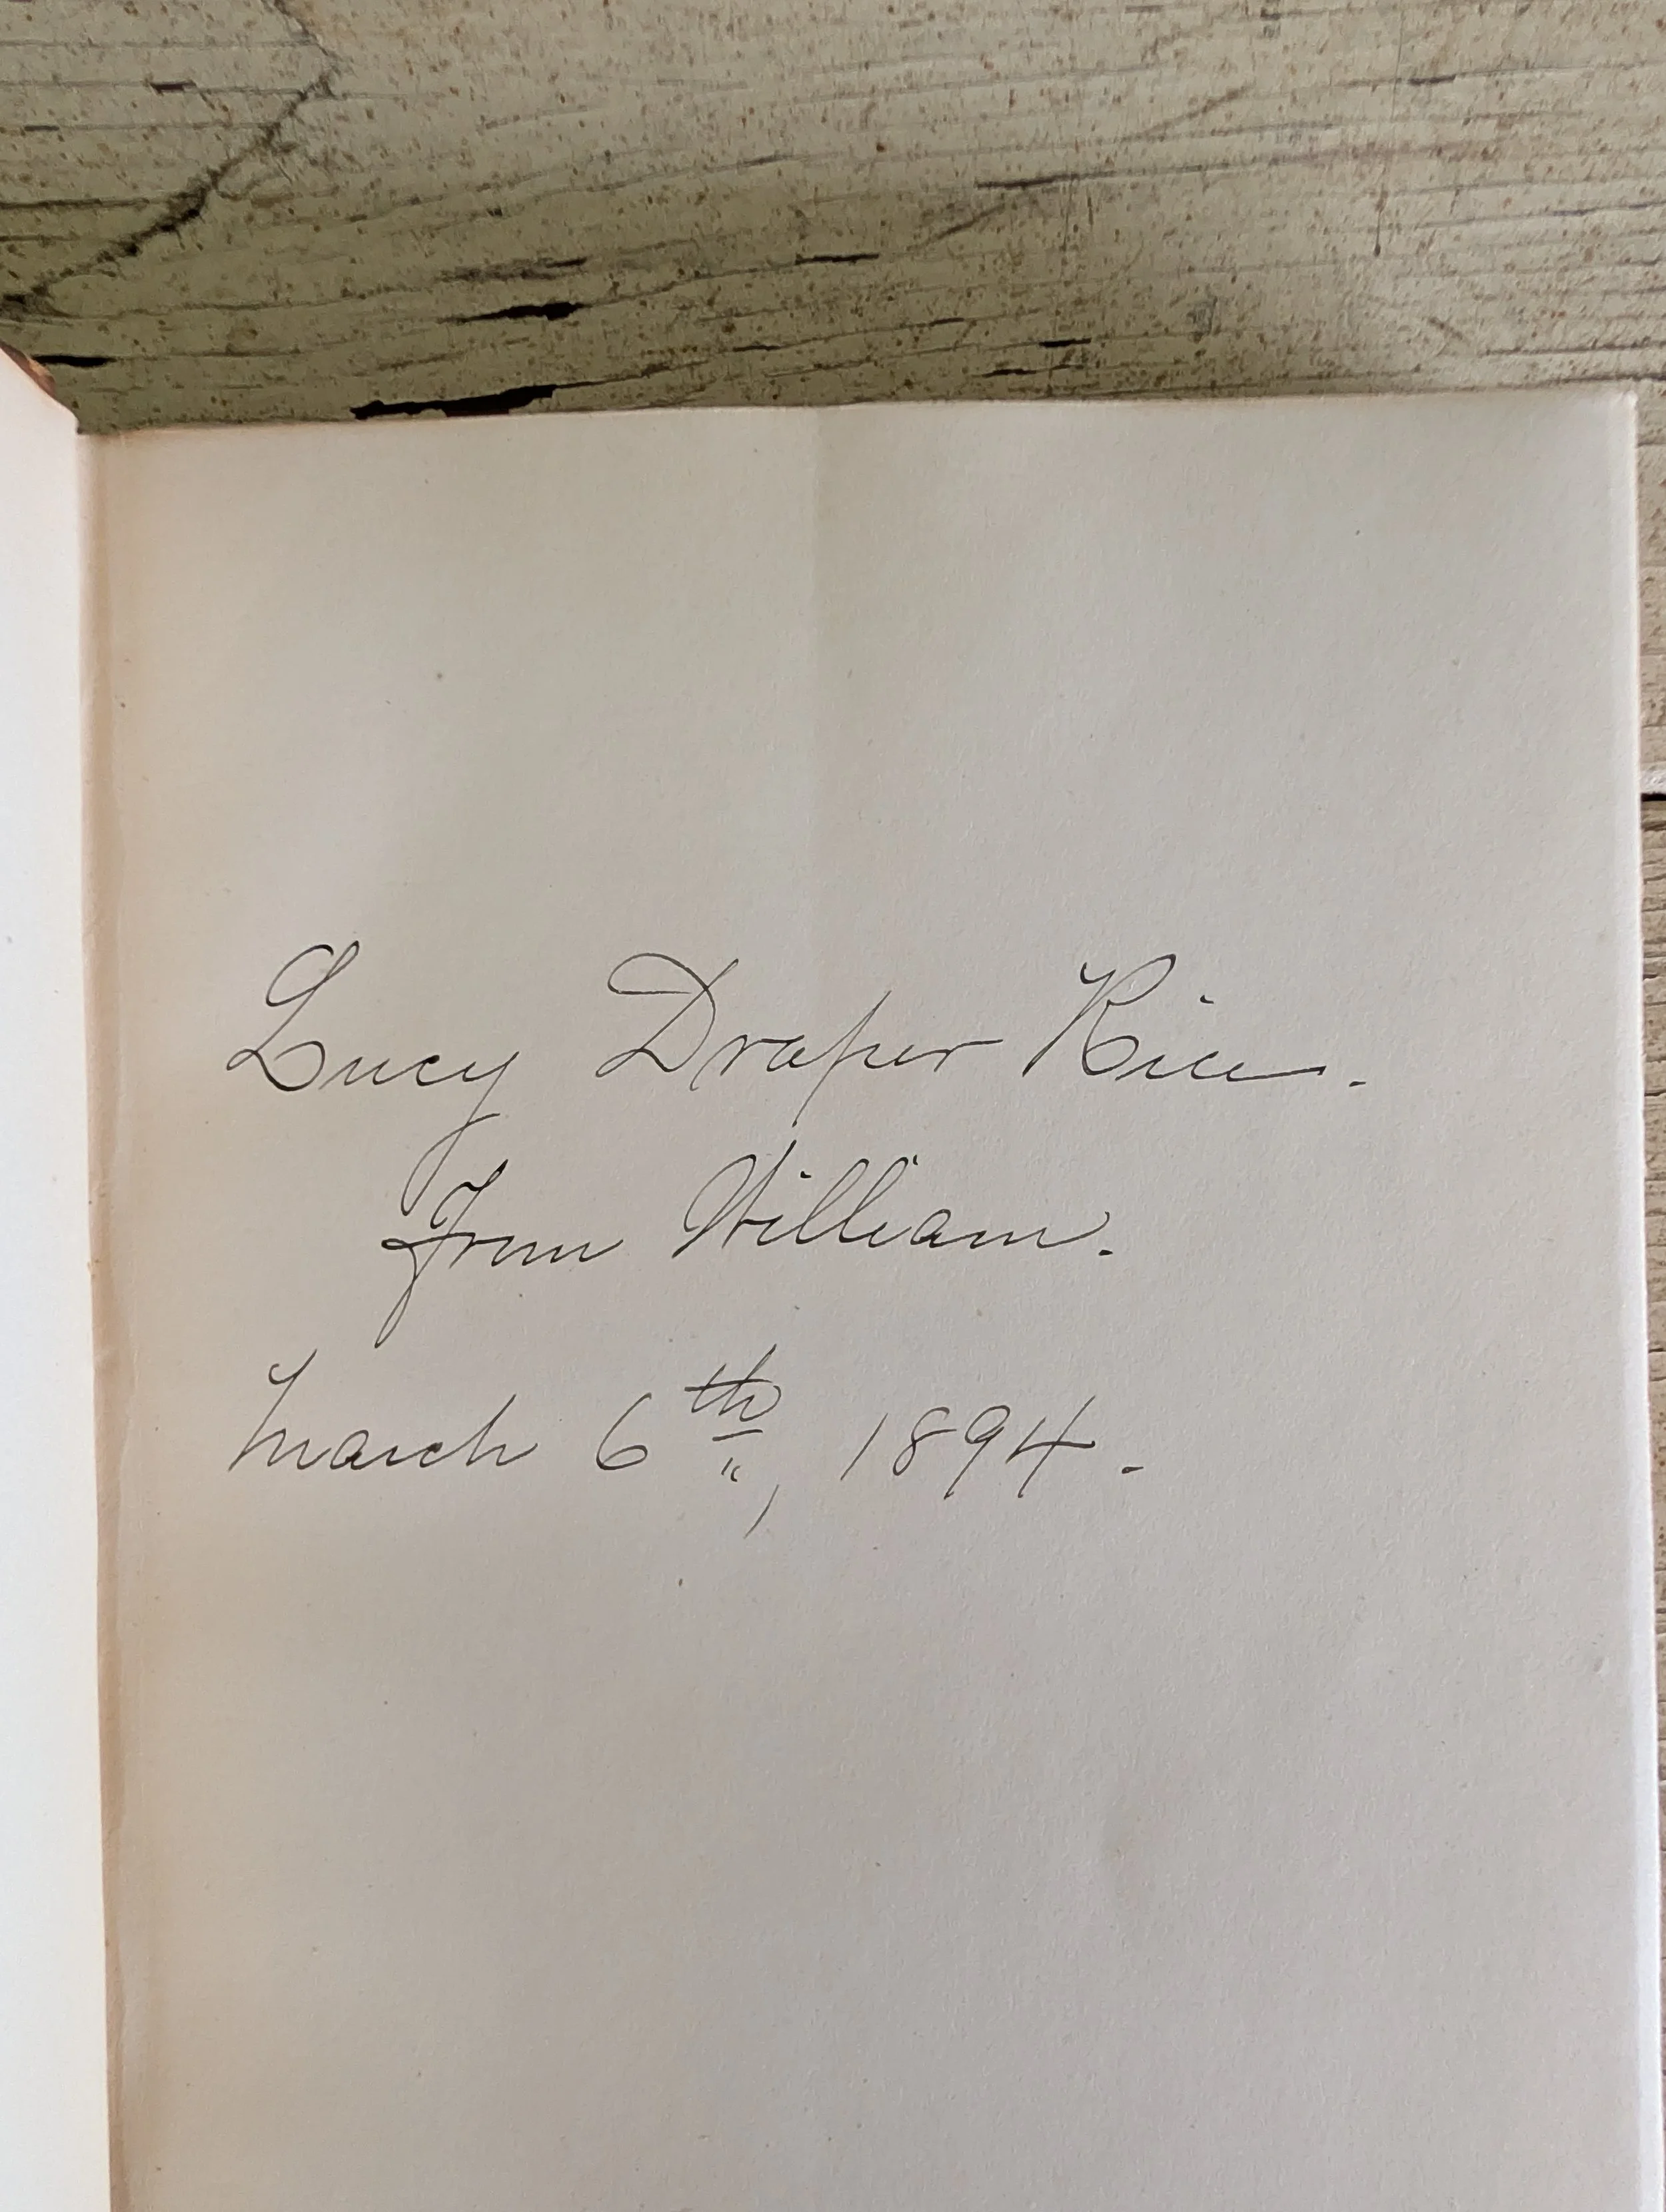 Lucy Draper Rice.
From William.
March 6th, 1894.